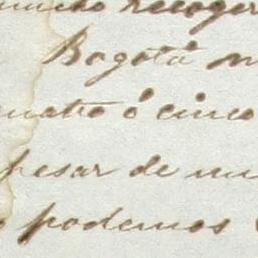 mucho recoger
Bogotá
cuatro ó cinco
pesar de
podemos